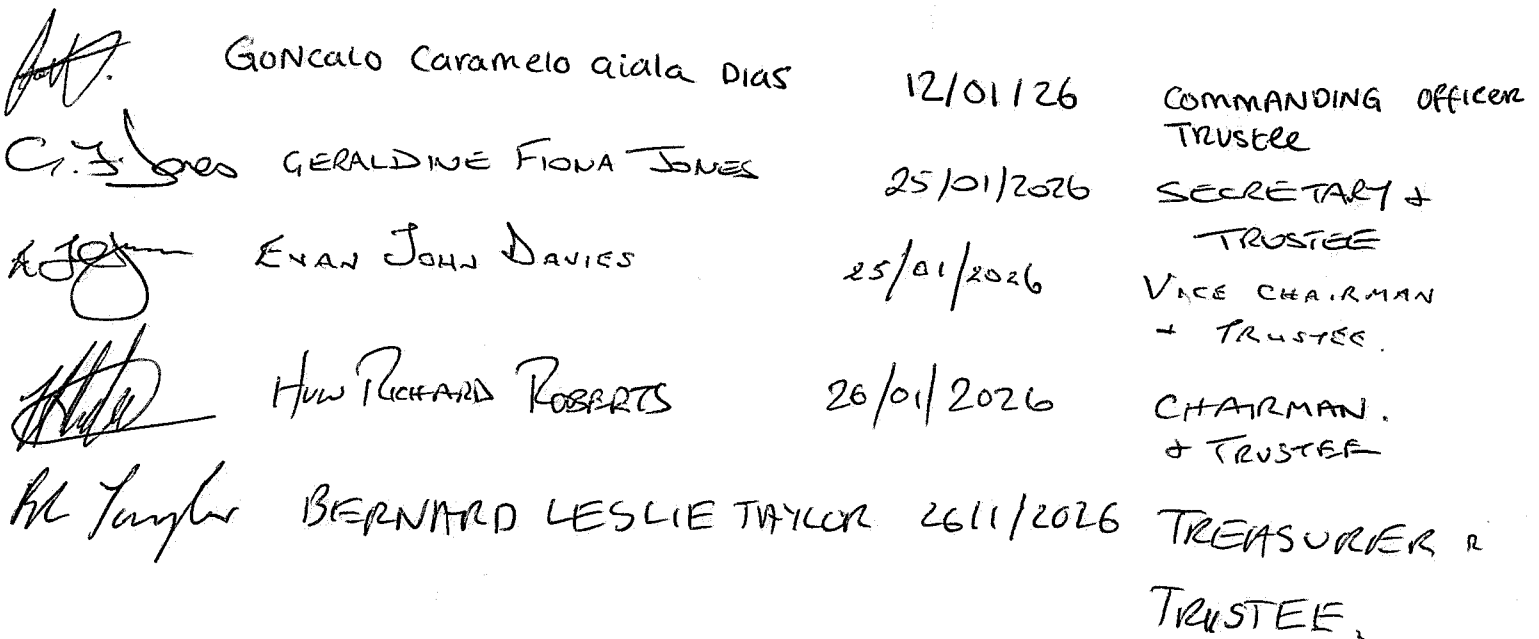 GONCALO Caramelo aiala DIAS 12/01/26 COMMANDING OFFICER
TRUSTEE
G. F. Jones GERALDINE FIONA JONES 25/01/2026 SECRETARY &
TRUSTEE
EVAN JOHN DAVIES 25/01/2026 VICE CHAIRMAN
& TRUSTEE.
HUW RICHARD ROBERTS 26/01/2026 CHAIRMAN.
& TRUSTEE
BL Taylor BERNARD LESLIE TAYLOR 26/1/2026 TREASURER &
TRUSTEE.